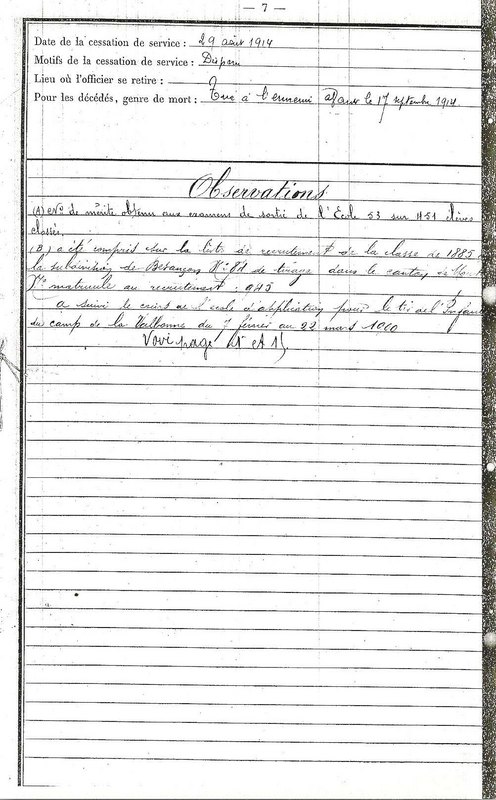 — 7 —
Date de la cessation de service : 29 août 1914
Motifs de la cessation de service : Disparu
Lieu où l'officier se retire :
Pour les décédés, genre de mort : Tué à l'ennemi avant le 17 septembre 1914
Observations
(A) No de mérite obtenu aux examens de sortie de l'École 53 sur 451 élèves
classés.
(B) a été compris sur la liste de recrutement de la classe de 1885
la subdivision de Besançon No 81 de tirage dans le canton de
No matricule au recrutement : 945
a suivi le cours de l'école d'application pour le tir de l'Infan
du camp de la Valbonne du 7 février au 22 mars
Voir page 4 et 15